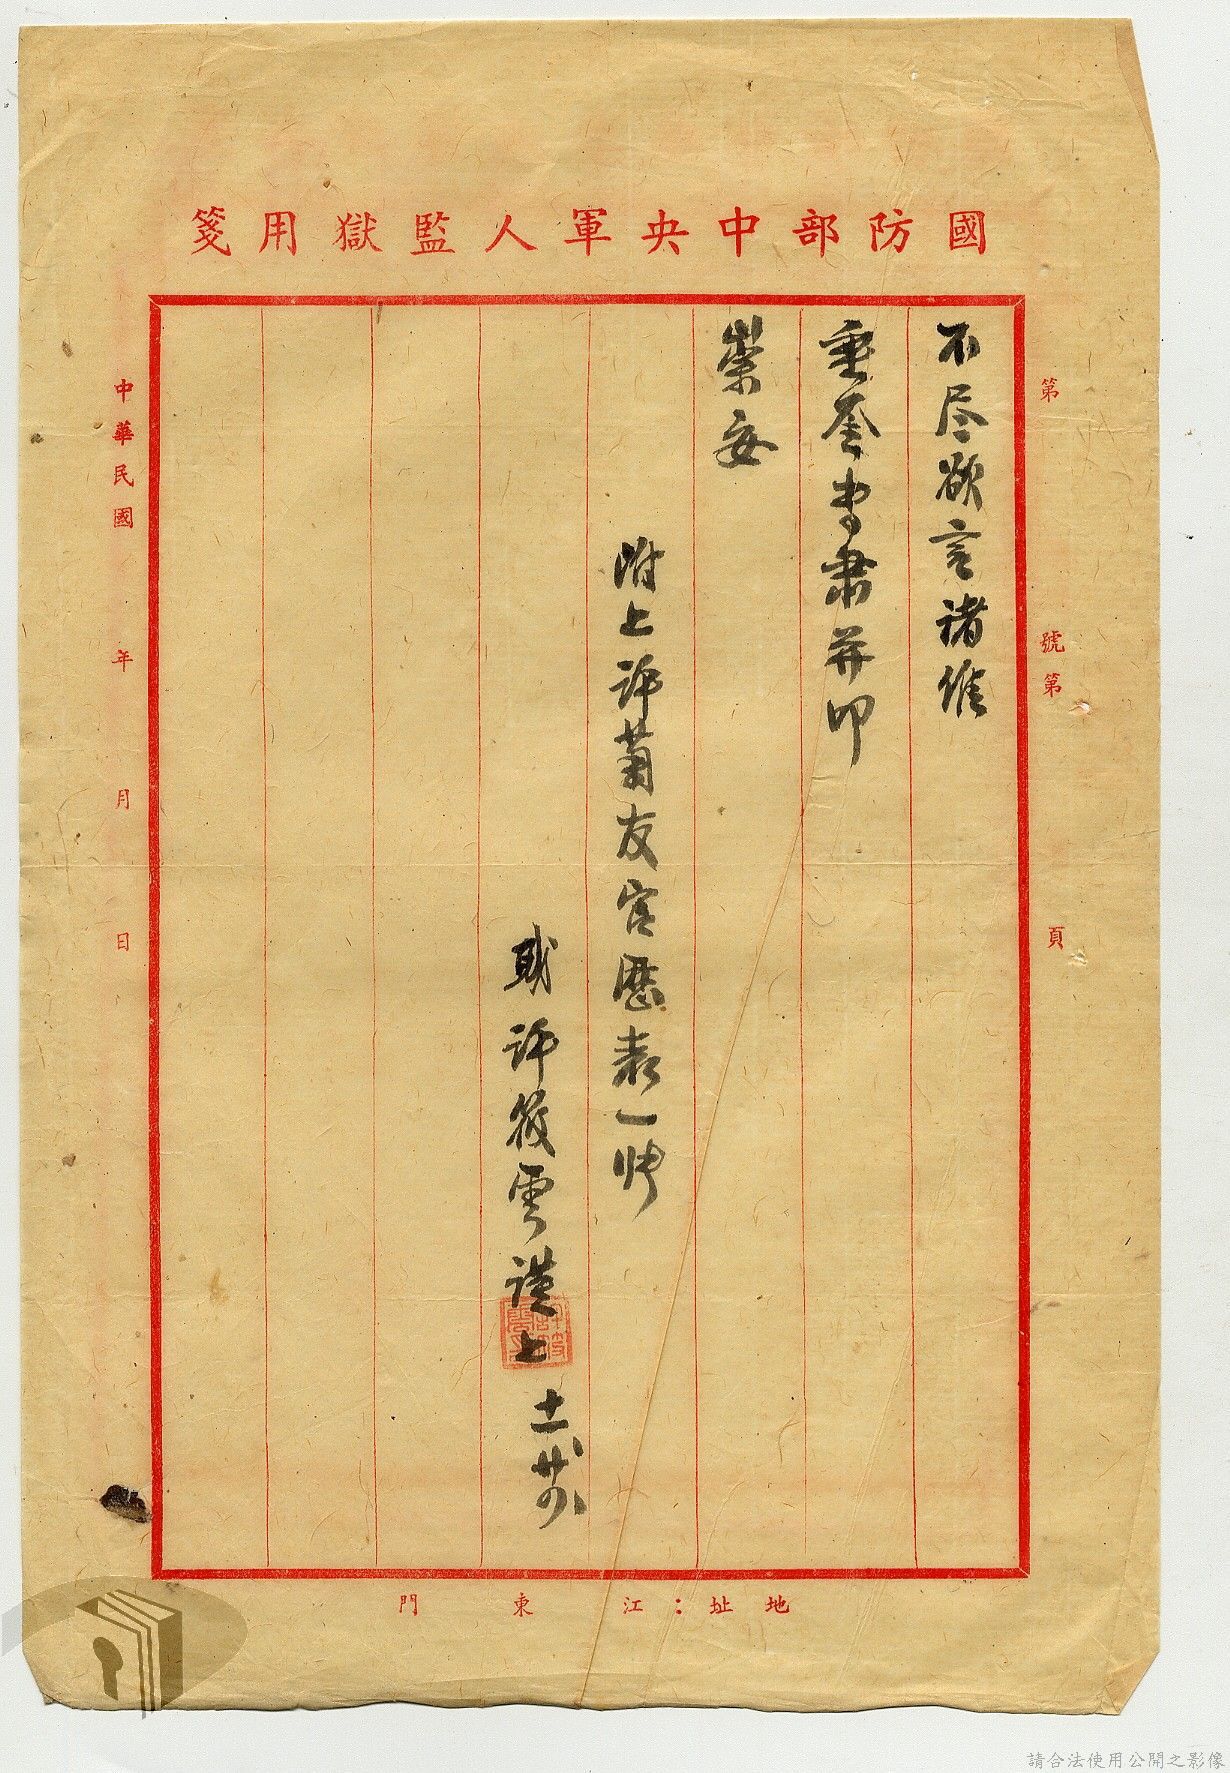 國防部中央軍人監獄用箋
第　號第　頁
不尽欲言諸維
垂荃専肅并叩
崇安
附上許蕭友宮歷表一帋
職許筱雲謹上 十一廿
中華民國　年　月　日
地址：江東門
請合法使用公開之影像